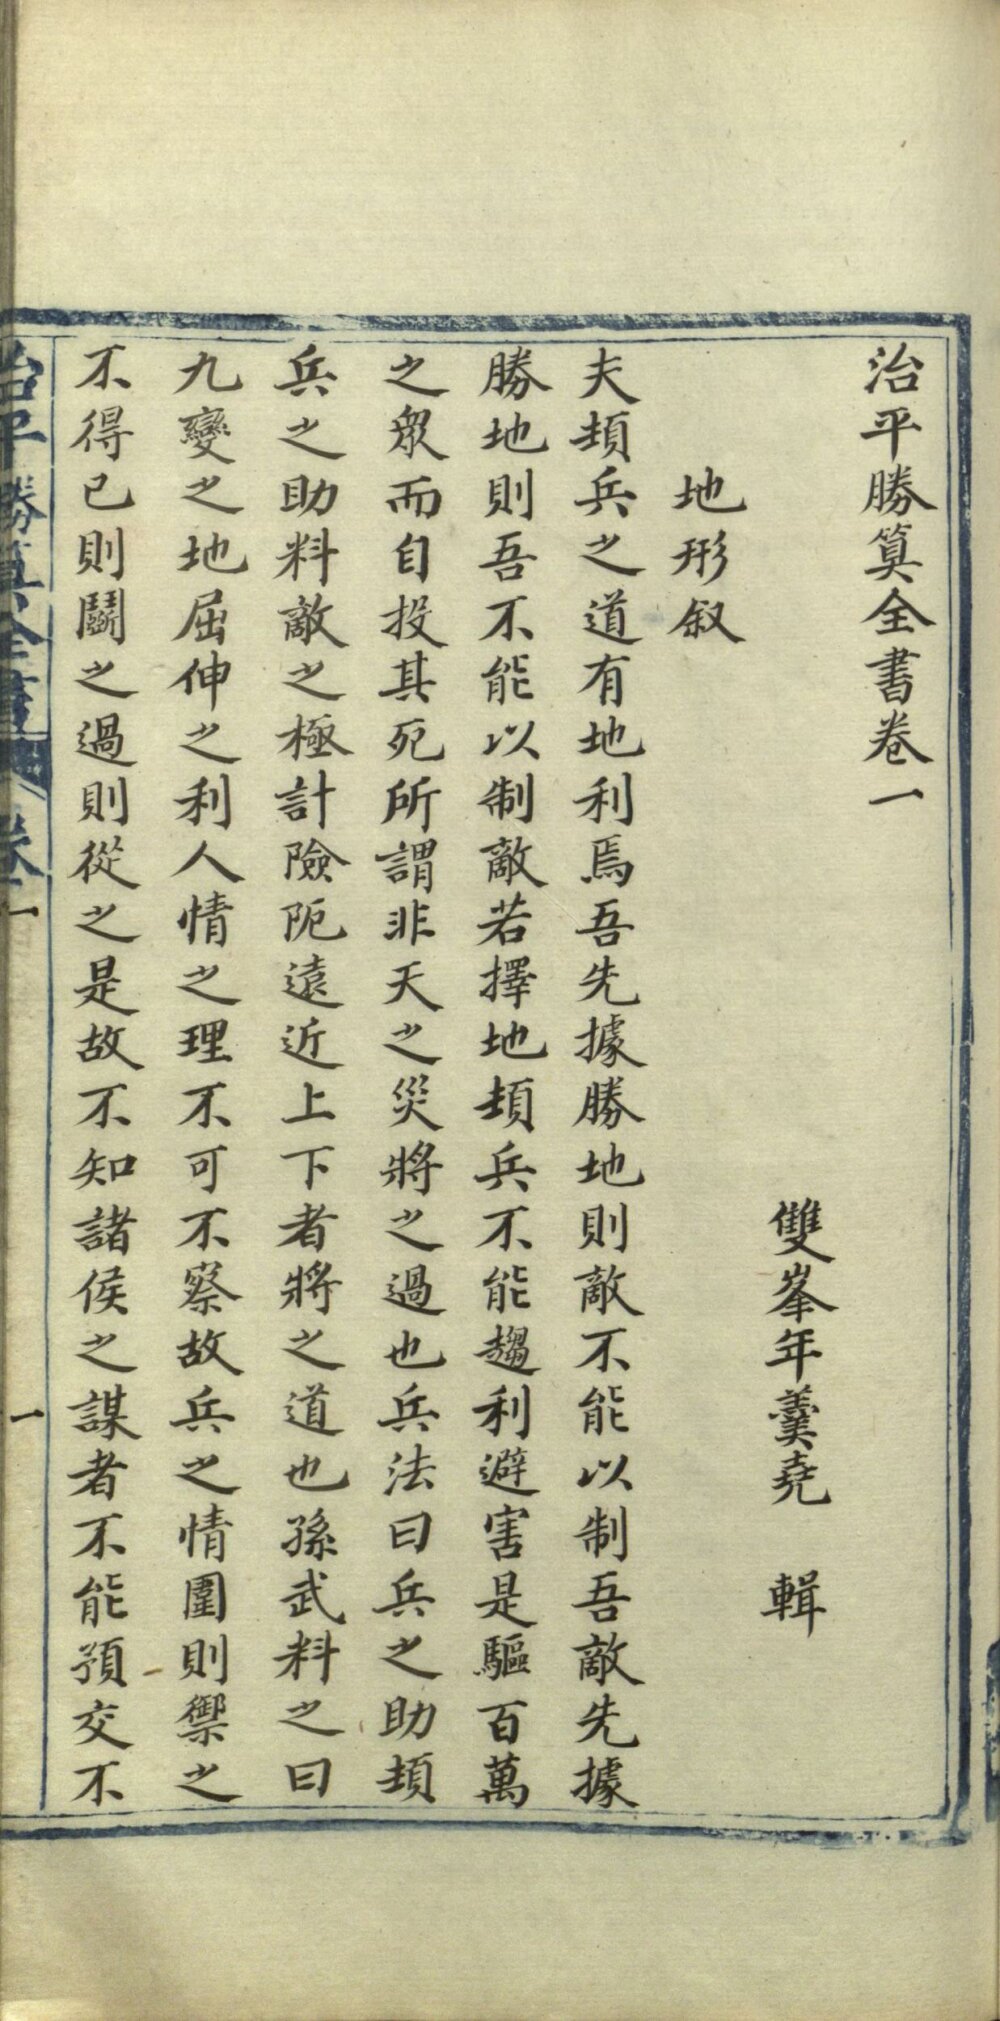 治平勝算全書卷一
雙峯年羹堯　輯
地形叙
夫頓兵之道有地利焉吾先據勝地則敵不能以制吾敵先據
勝地則吾不能以制敵若擇地頓兵不能趨利避害是驅百萬
之眾而自投其死所謂非天之災將之過也兵法曰兵之助頓
兵之助料敵之極計險阨遠近上下者將之道也孫武料之曰
九變之地屈伸之利人情之理不可不察故兵之情圍則禦之
不得已則鬬之過則從之是故不知諸侯之謀者不能預交不
治平勝算全書 卷一 一